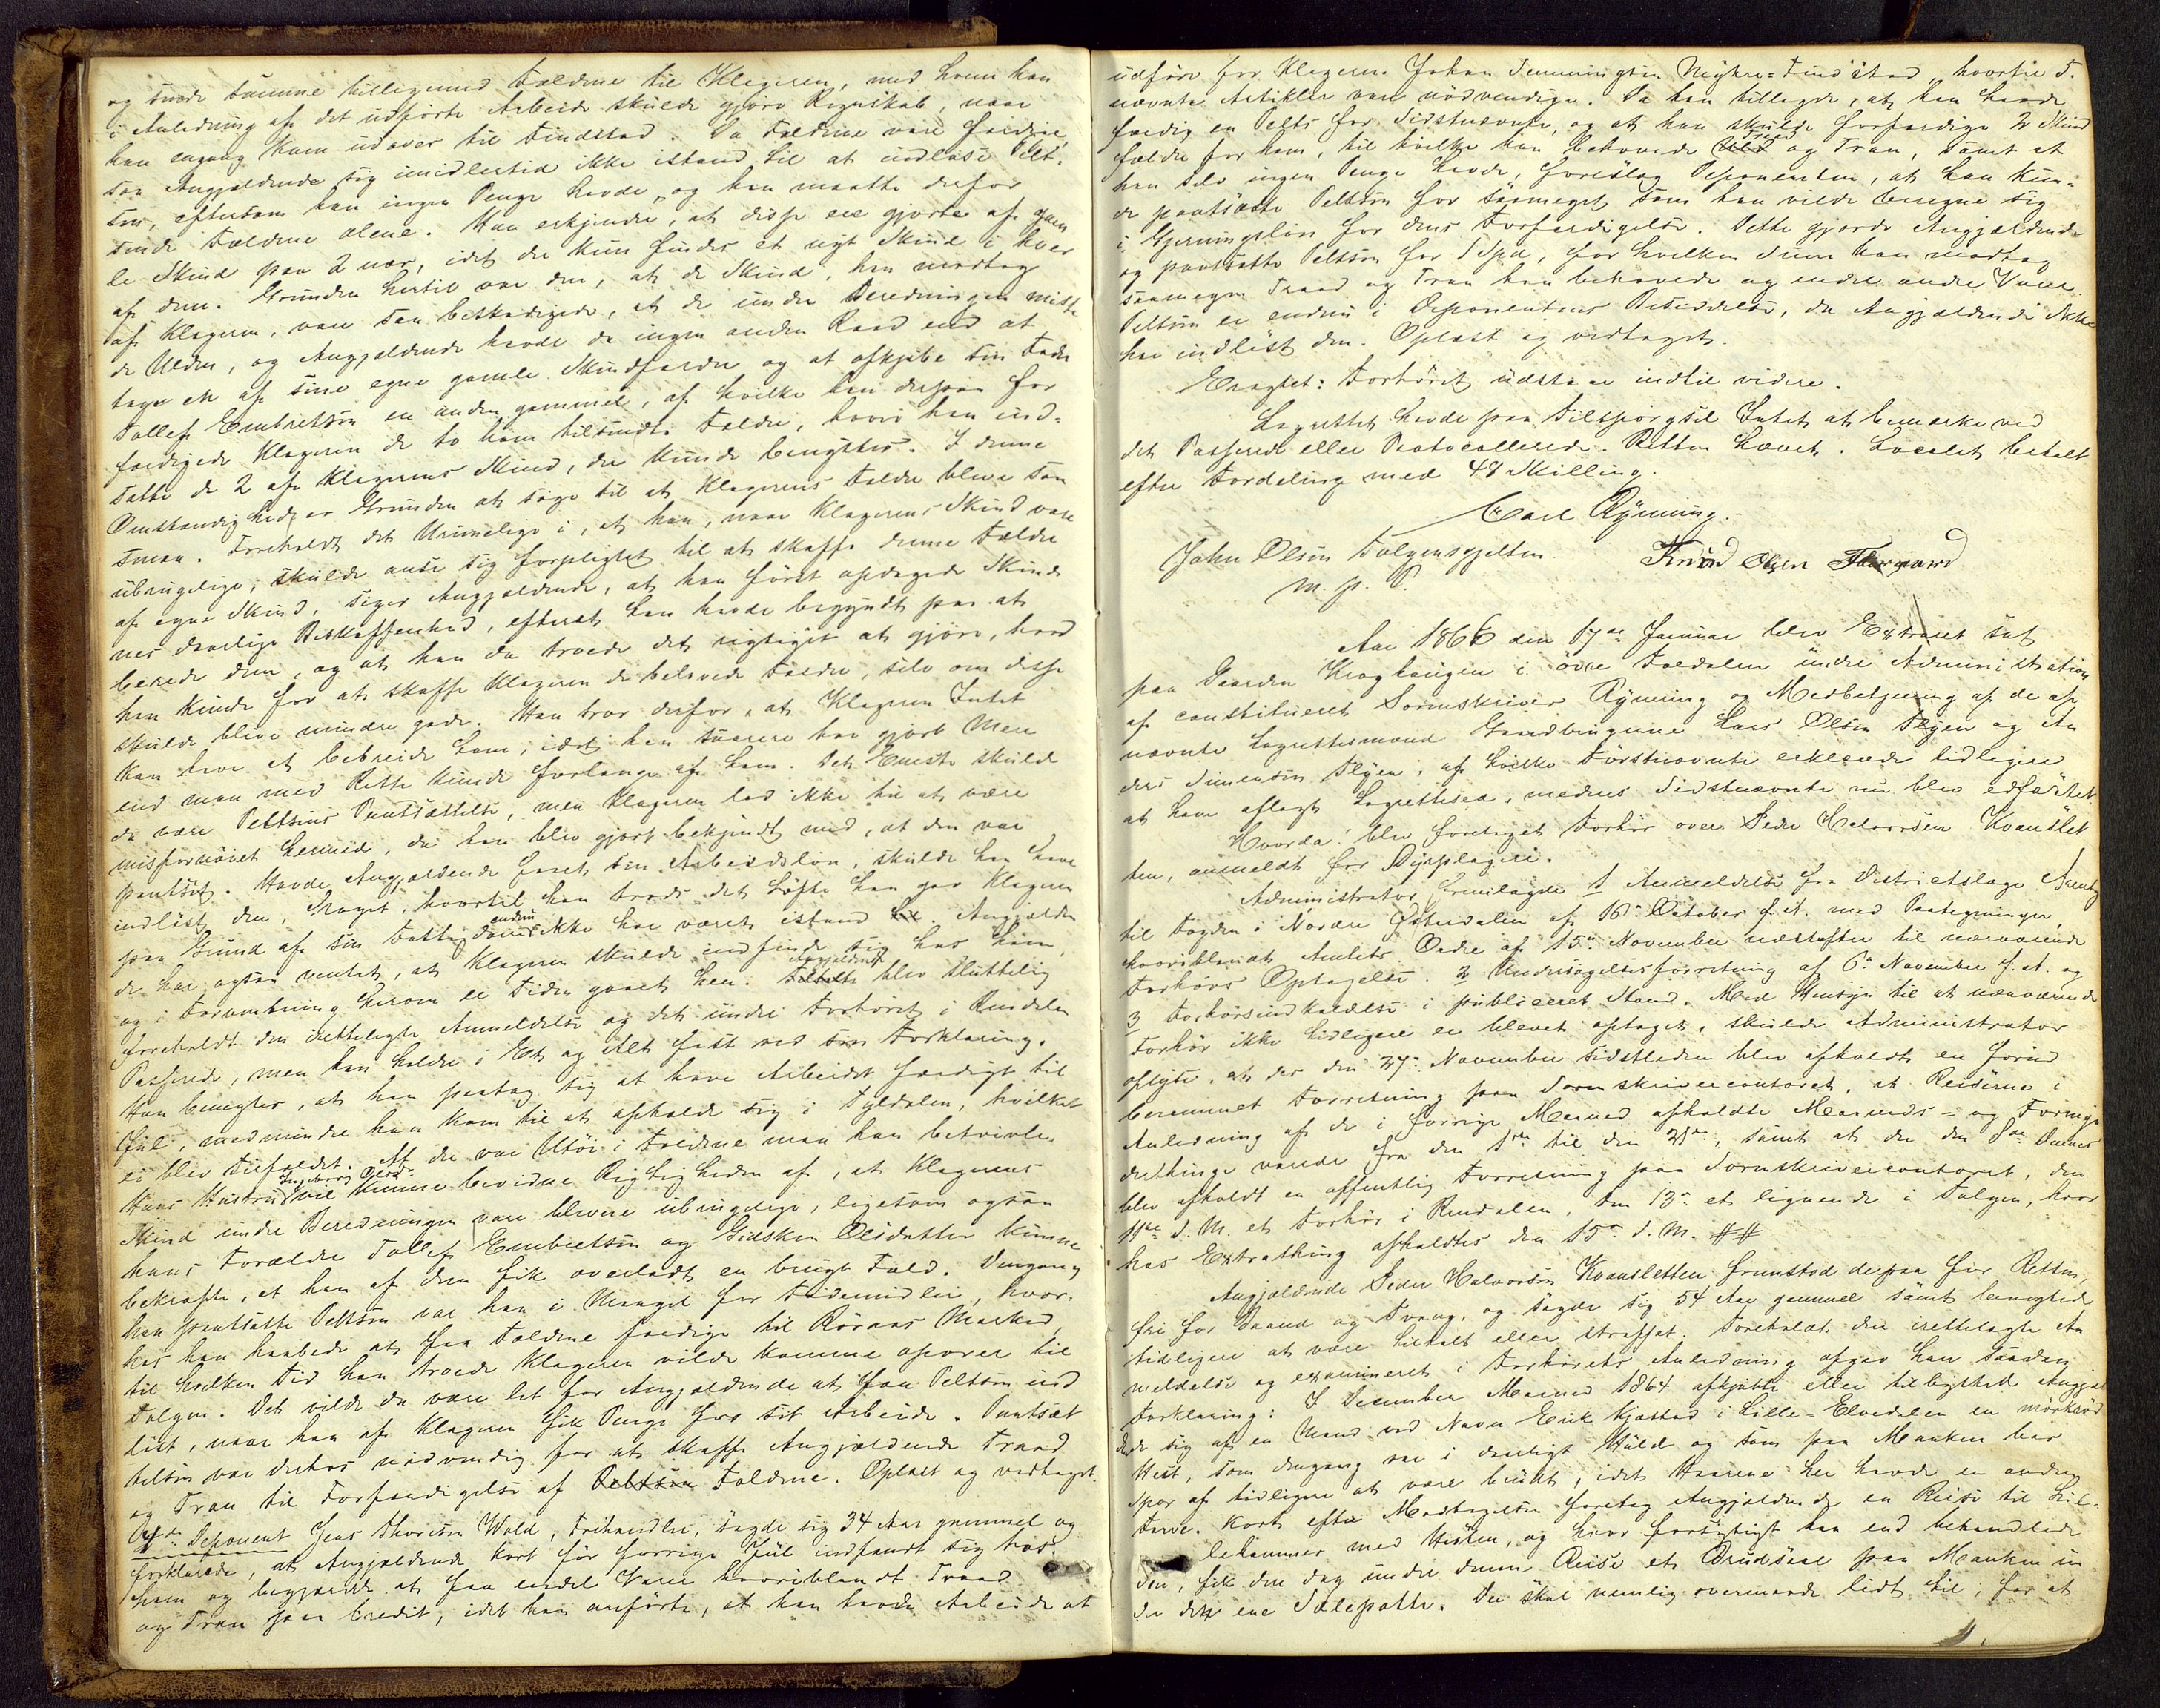 og sende samme tilligemed Fældene til Klageren, med hvem han
i Anledning af det udførte Arbeide skulde gjøre Regnskab, naar
han engang kom udover til Findstad. Da Fældene vare færdige,
saa Angjældende sig imidlertid ikke istand til at indløse Pelt-
sen, eftersom han ingen Penge havde, og han maatte derfor
sende Fældene alene. Han erkjender, at disse ere gjorte af gam
le Skind paa 2 nær, idet der kun findes et nyt Skind i hver
af dem. Grunden hertil var den, at de Skind, han modtog
af Klageren, vare saa beskadigede, at de under Beredningen miste
de Ulden, og Angjældende havde da ingen anden Raad end at
tage en af sine egne gamle Skindfælder og at afkjøbe sin Fader
Tollef Embretsen en anden gammel, af hvilke han derpaa for
færdigede Klageren de to ham tilsendte Fælder, hvori han ind-
satte de 2 af Klagerens Skind, der kunde benyttes. I denne
Omstændighed er Grunden at søge til at Klagerens Fælde bleve saa
smaa. Foreholdt det Urimelige i, at han, naar Klagerens Skind vare
ubrugelige, skulde anse sig forpligtet til at skaffe denne Fælder
af egne Skind, siger Angjældende, at han først opdagede Skinde
nes daarlige Beskaffenhed, efterat han havde begyndt paa at
berede dem, og at han da troede det rigtigst at gjøre, hvad
han kunde for at skaffe Klageren de belovede Fælder, selv om disse
skulde blive mindre gode. Han tror derfor, at Klageren Intet
kan have at bebreide ham, idet han snarere har gjort Mere
end man med Rette kunde forlange af ham. Det Eneste skulde
da være Peltsens Pantsættelse, men Klageren lod ikke til at være
misfornøiet hermed, da han blev gjort bekjendt med, at den var
pantsat. Havde Angjældende faaet sin Arbeidsløn, skulde han have
indløst den, Noget, hvortil han trods det Løfte han gav Klageren
paa Grund af sin Fattigdom endnu ikke har været istand til. Angjælden
de har ogsaa ventet, at Klageren skulde indfinde sig hos ham,
og i Forventning herom er Tiden gaaet hen. Angjældende blev sluttelig
foreholdt den irettelagte Anmeldelse og det under Forhøret i Rendalen
Passerede, men han holder i Et og Alt fast ved sin Forklaring.
Han benægter, at han paatog sig at have Arbeidet færdigt til
Jul, medmindre han kom til at opholde sig i Tyldalen, hvilket
ei blev Tilfældet. At der var Utøi i Fældene maa han betvivle.
Hans Hustru Ingeborg Olsd. vil kunne bevidne Rigtigheden af, at Klagerens
Skind under Beredningen vare blevne ubrugelige, ligesom ogsaa
hans Forældre Tollef Embretsen og Gidsken Olsdatter kunne
bekræfte, at han af dem fik overladt en brugt Fæld. Dengang
han pantsatte Peltsen var han i Mangel for Fødemidler, hvor-
hos han haabede at faa Fældene færdige til Røraas Marked
til hvilken Tid han troede Klageren vilde komme opover til
Tolgen. Det vilde da være let for Angjældende at faa Peltsen ind
løst, naar han af Klageren fik Penge for sit Arbeide. Pantsæt
telsen var derhos nødvendig for at skaffe Angjældende Traad
og Tran til Forfærdigelse af Peltsen Fældene. Oplæst og vedtaget.
Deponent Jens Thoresen Wold, Frihandler, sagde sig 34 Aar gammel og
forklarede, at Angjældende kort før forrige Jul indfandt sig hos
ham og begjærede at faa endel Varer hvoriblandt Traad
og Tran paa Credit, idet han anførte, at han havde Arbeide at
udføre for Klageren Johan Semmingsen Nyhus-Findstad, hvortil d.
nævnte Artikler vare nødvendige. Da han tillagde, at han havde
færdig en Pelts for Sidstnævnte, og at han skulde forfærdige 2 Skind
fælder for ham, til hvilke han behøvede Uld Traad og Tran, samt at
han selv ingen Penge havde, foreslog Deponenten, at han kun-
de pantsætte Peltsen for saameget, som han vilde beregne sig
i Gjerningsløn for dens Forfærdigelse. Dette gjorde Angjældende
og pantsatte Peltsen for 1 Spd, for hvilken Sum han modtog
saamegen Traad og Tran han behøvede og endel andre Varer.
Peltsen er endnu i Deponentens Besiddelse, da Angjældende ikke
har indløst den. Oplæst og vedtaget.
Eragtet: Forhøret udstaar indtil videre.
Lagrettet havde paa Tilspørgsel Intet at bemærke ved
det Passerede eller Protocollerede. Retten hævet. Localet betalt
efter Fordeling med 48 Skilling.
Carl Rynning.
John Olsen Tolgensgjelten Knud Olsen
m. p. P.
Aar 1866 den 17de Januar blev Extraret sat
paa Gaarden Kroghaugen i øvre Foldalen under Administration
af constitueret Sorenskriver Rynning og Medbetjening af de op
nævnte Lagrettesmænd Gaardbrugerne Lars Olsen Flyen og An
ders Simensen Flyen, af hvilke Førstnævnte erklærede tidligere
at have aflagt Lagretteseed, medens Sidstnævnte nu blev edfæstet.
Hvorda: blev foretaget Forhør over Peder Halvorsen Kvanslet
ten, anmeldt for Dyrplageri.
Administrator fremlagde 1 Anmeldelse fra Districtslæge
til Fogden i Nordre Østerdalen af 16de October f. A. med Paategninger,
hvoriblandt Amtets Ordre af 15de November næstefter til nærværende
Forhørs Optagelse. 2 Undersøgelsesforretning af 6te November f. A. og
3 Forhørsindkaldelse i publiceret Stand. Med Hensyn til at nærværende
Forhør ikke tidligere er blevet optaget, skulde Administrator
oplyse, at der den 27de November sidstleden blev afholdt en forud
berammet Forretning paa Sorenskrivercontoret, at Reiserne i
Anledning af de i forrige Maaned afholdte Maaneds- og Formyn
derthinge varede fra den 1ste til den 21de, samt at der den 8de Dennes
blev afholdt en offentlig Forretning paa Sorenskrivercontoret, den
11te d. M. et Forhør i Rendalen, den 13de et lignende i Tolgen, hvor
hos Extrathing afholdtes den 15de d. M. ##
Angjældende Peder Halvorsen Kvansletten fremstod derpaa for Retten,
fri for Baand og Tvang, og sagde sig 54 Aar gammel samt benægtede
tidligere at være tiltalt eller straffet. Foreholdt den irettelagte An
meldelse og examineret i Forhørets Anledning afgav han saadan
Forklaring: I December Maaned 1864 afkjøbte eller tilbyttede Angjæl
dende sig af en Mand ved Navn Erik Kjøstad i Lille-Elvedalen en mørkrød
Hest, som dengang var i daarligt Huld og som paa Manken bar
Spor af tidligere at være brudt, idet Haarene her havde en anden
Farve. Kort efter Modtagelsen foretog Angjældende en Reise til Lil-
lehammer med Hesten, og hvor forsigtigt han end behandlede
den, fik den dog under denne Reise et Brudsaar paa Manken un
der den ene Sælepatte. Der skal nemlig overmaade lidt til, for at